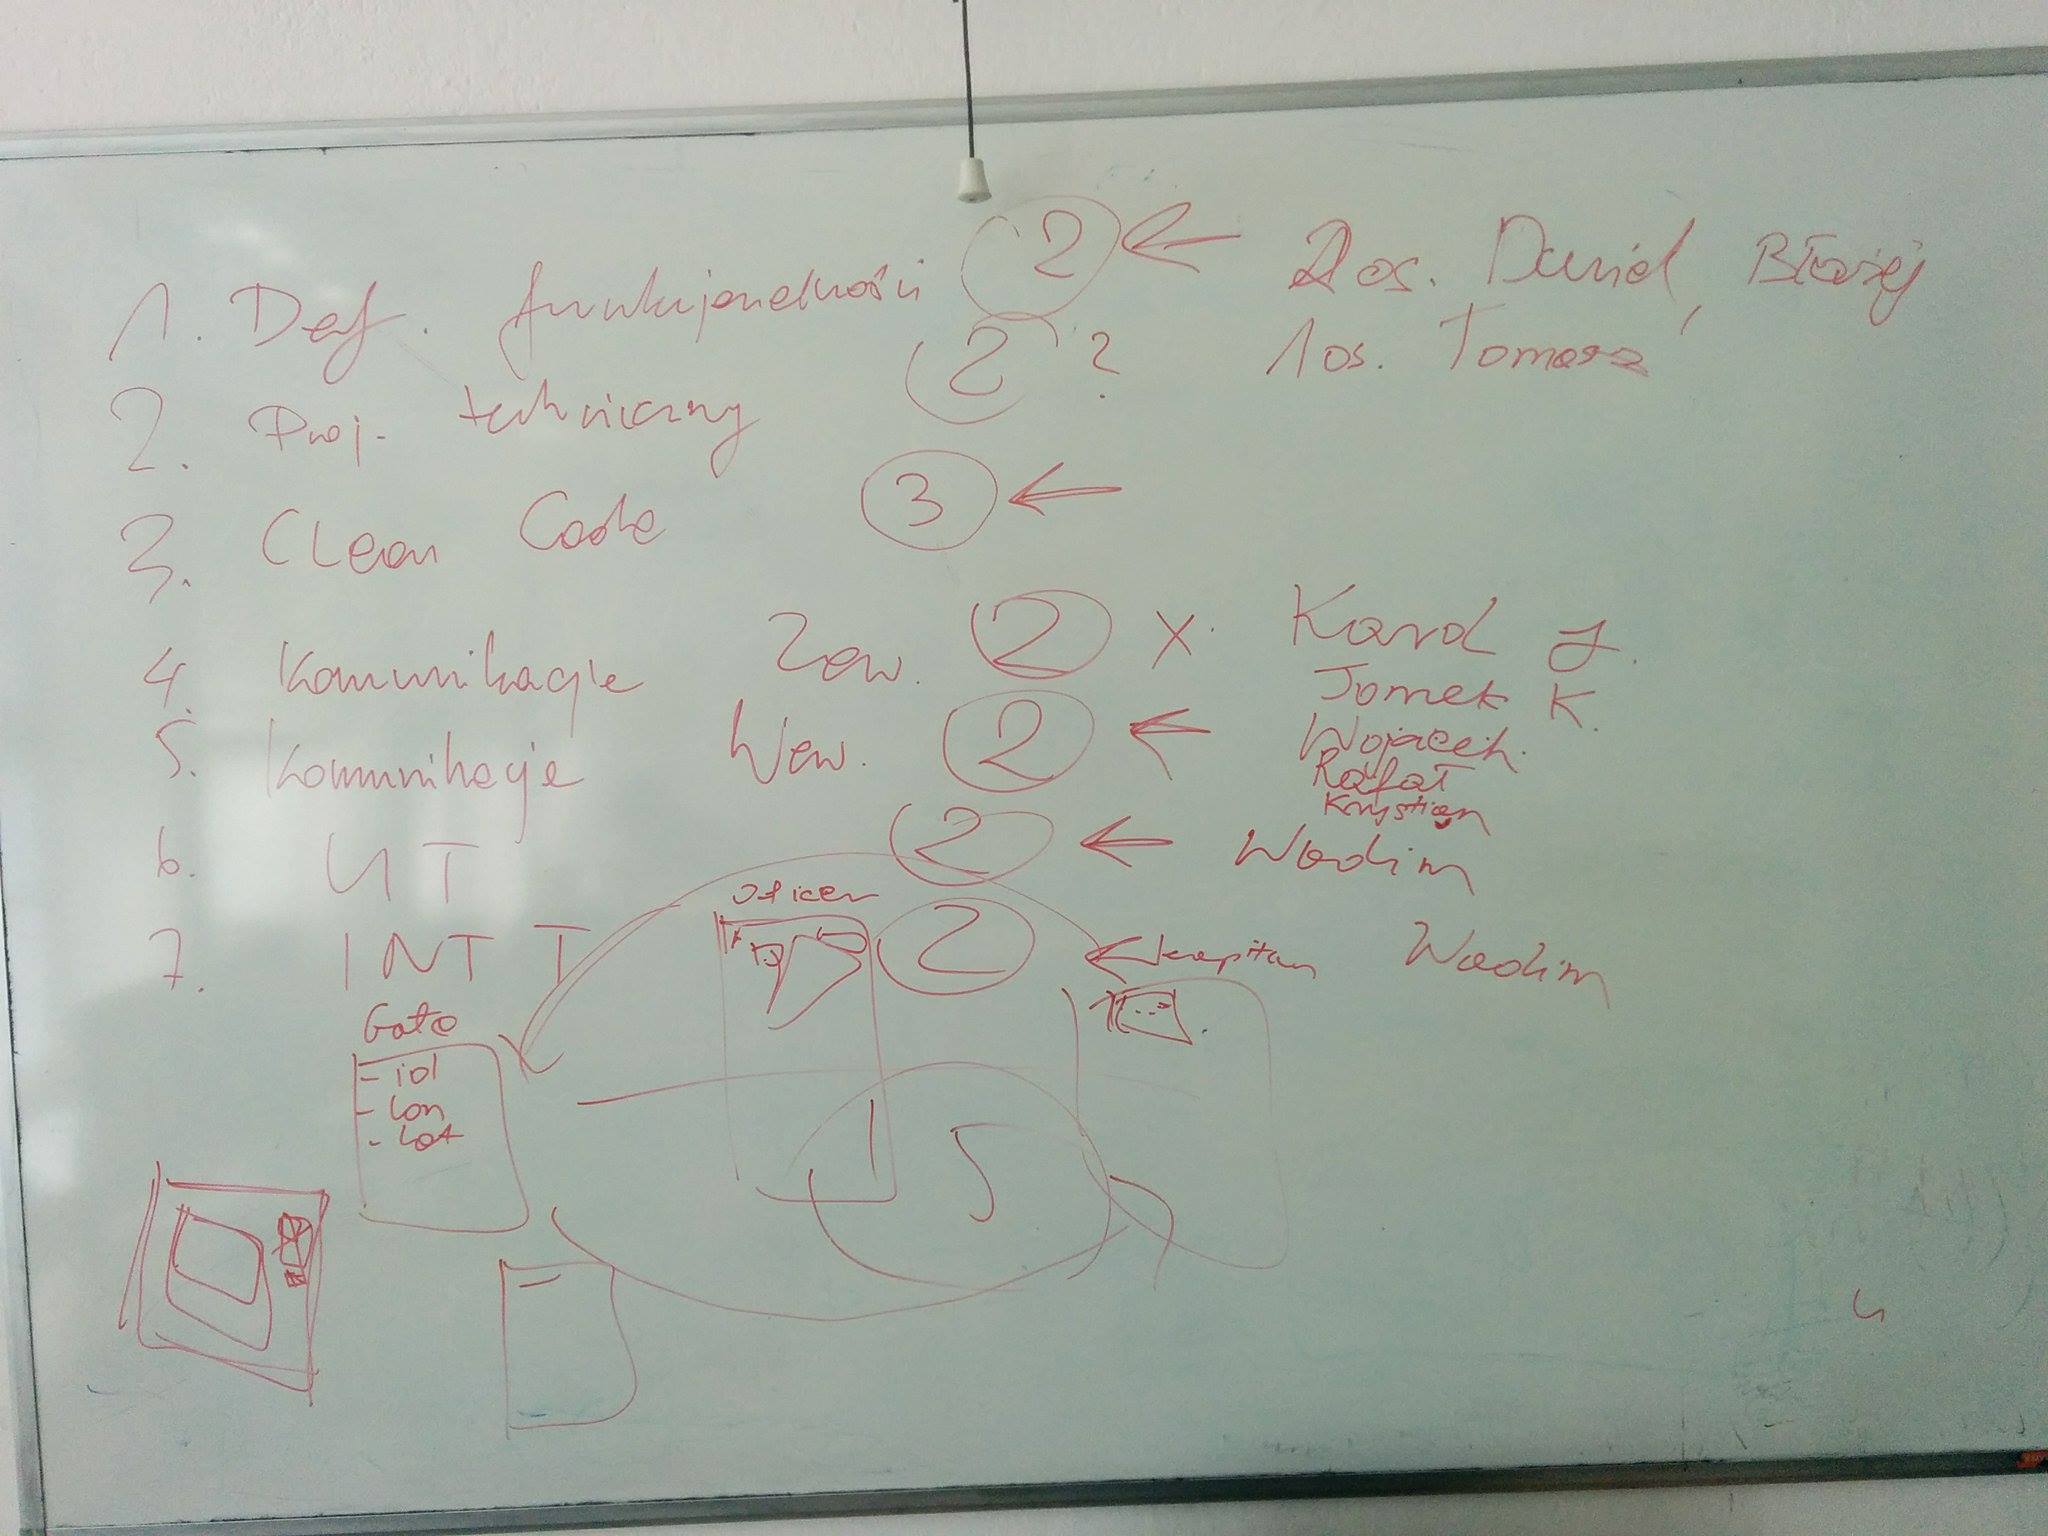 1. Def. funkcjonalności 2 ← 2 os. Daniel, Błażej
2. Proj. techniczny 2 ? 1 os. Tomasz
3. Clean Code 3 ←
4. Komunikacje Zew. 2 X. Karol J.
Tomek K.
5. Komunikacje Wew. 2 ← Wojciech.
Rafał
Krystian
6. UT 2 ← Wadim
Oficer
7. INT T 2 ← kapitan Wadim
Gate
- id
- lon
- lat
S